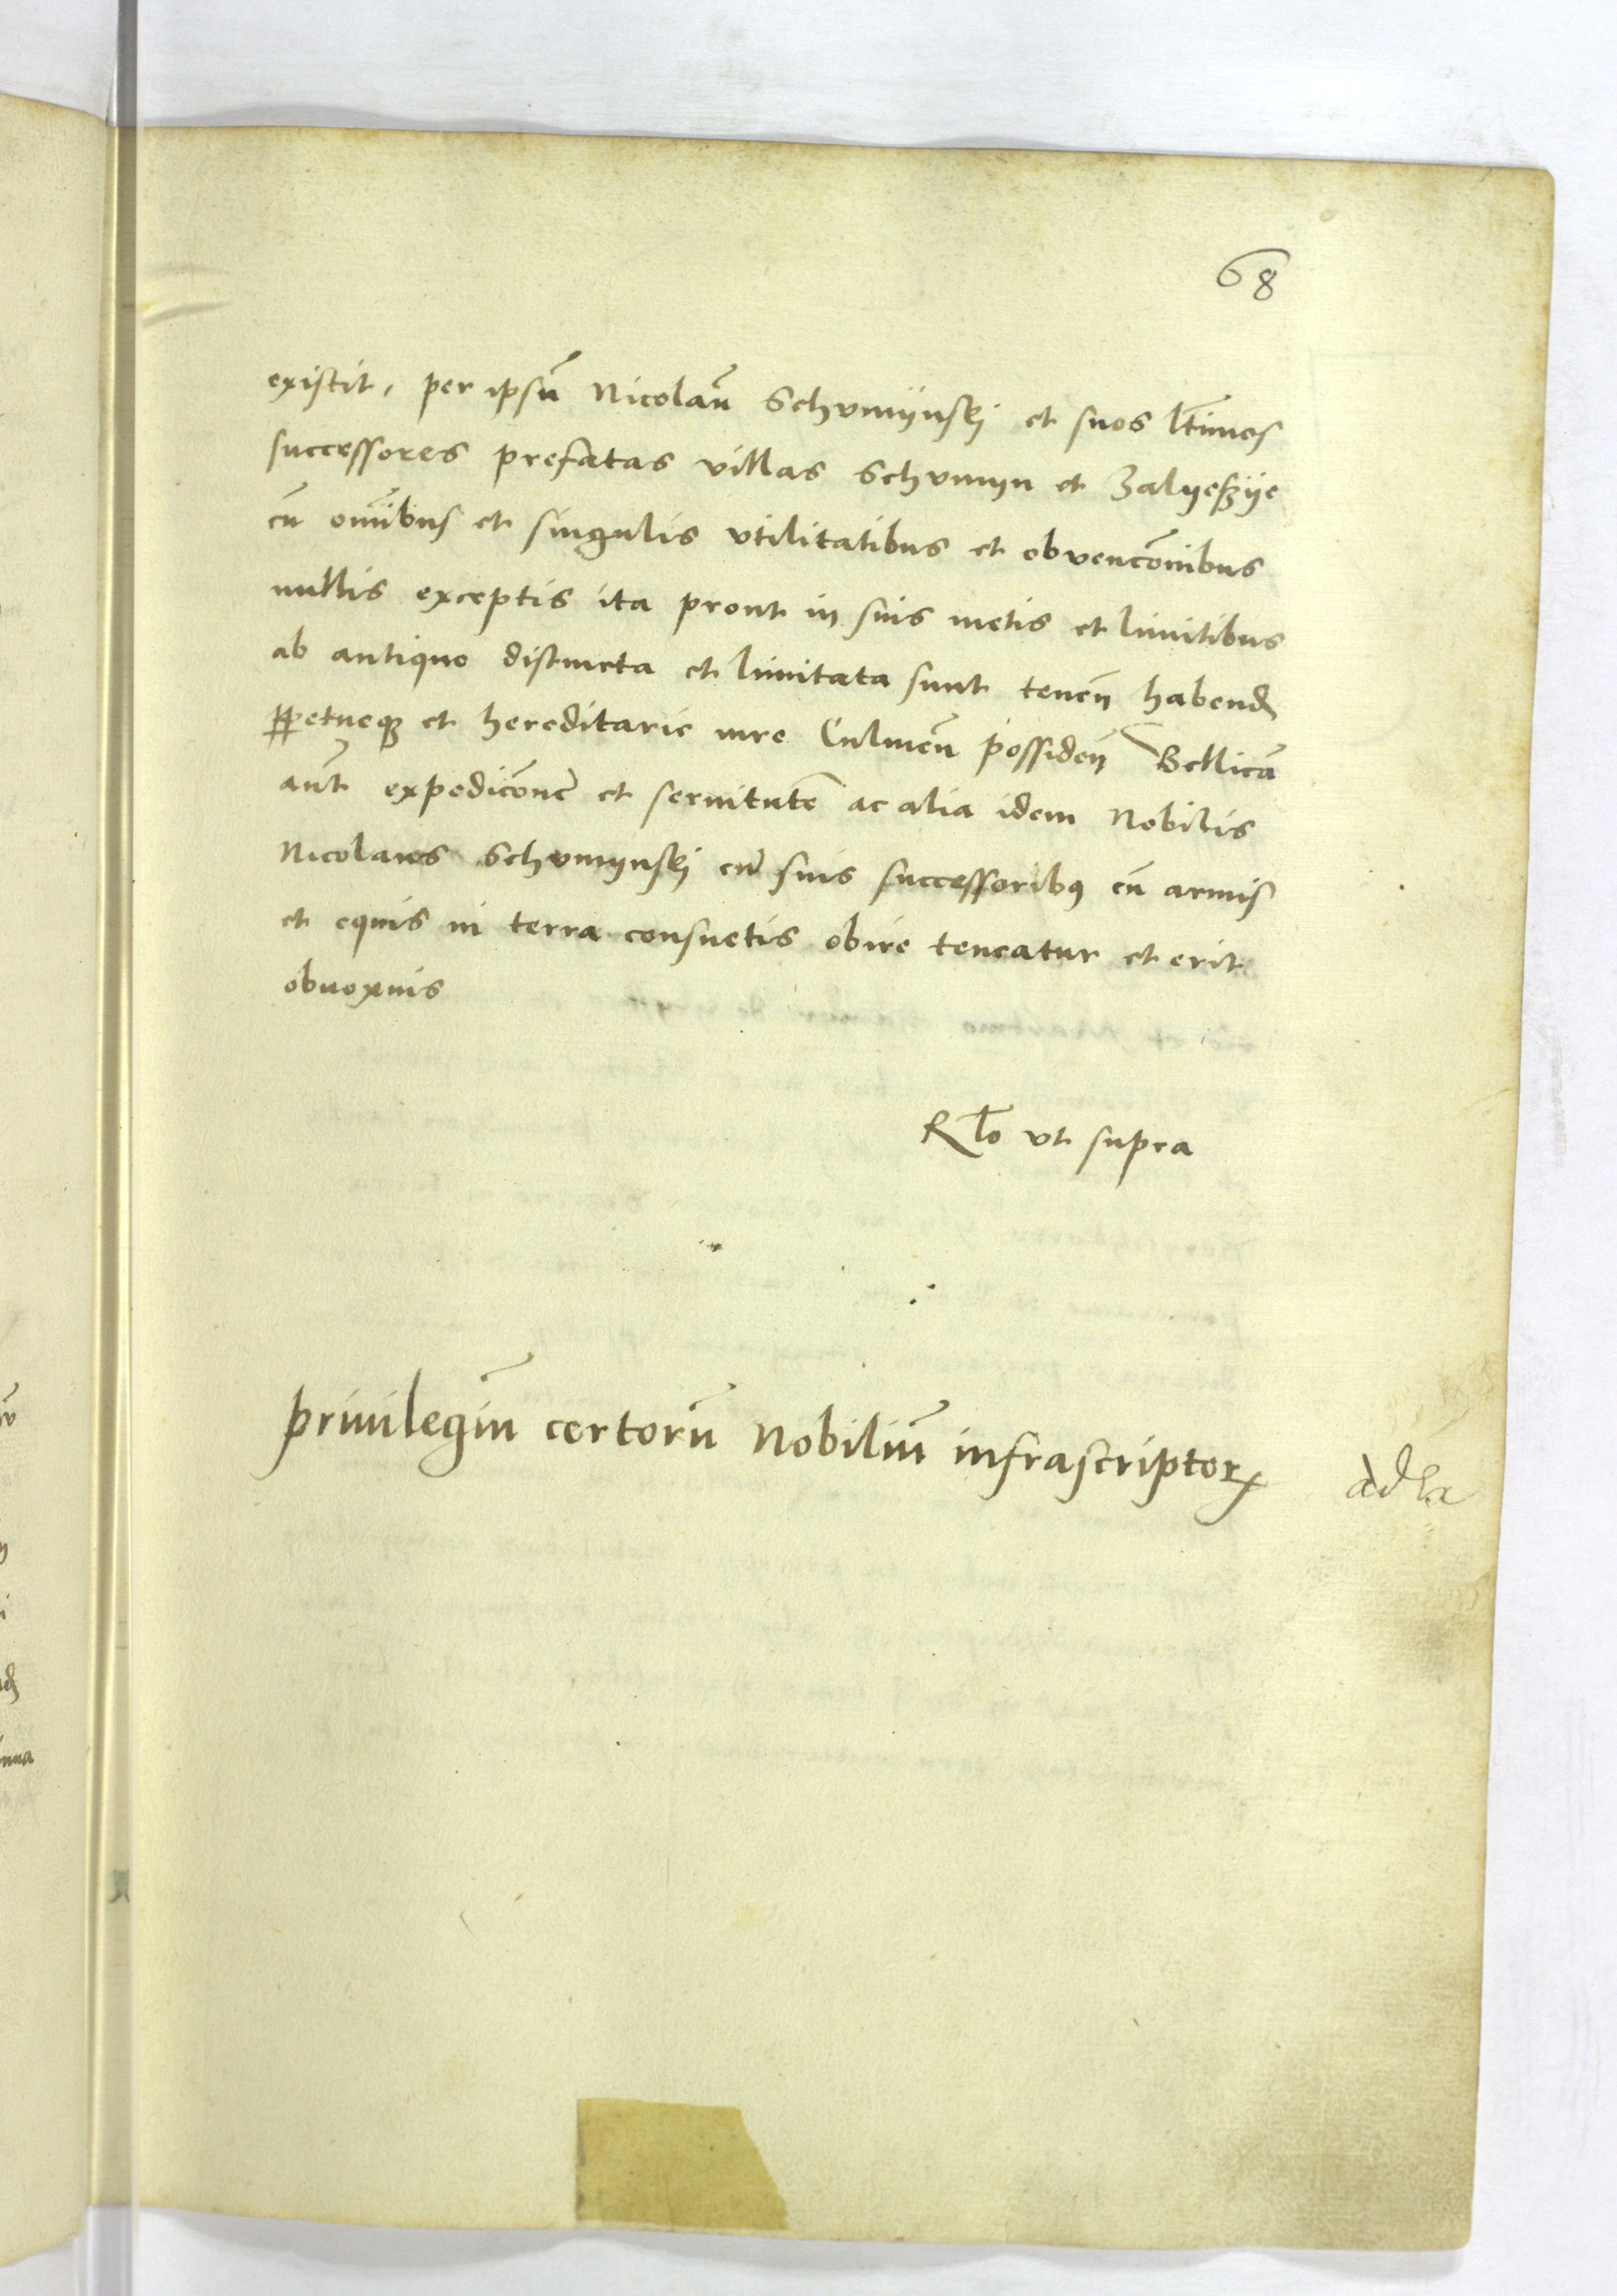 68
existit, per ipsū Nicolaū Schvmijnskj et suos l̄timos
successores prefatas villas Schvmijn et Zalijeszije
cū om̄ibus et singulis vtilitatibus et obvenc̄onibus
nullis exceptis ita prout in suis metis et limitibus
ab antiquo distincta et limitata sunt tenen̄ habend̄
ꝑpetueqꝫ et hereditarie iure Culmen̄ possiden̄ Bellicā
aūt expedic̄onē et seruitutē ac alia idem Nobilis
Nicolaus Schvmijnskj cū suis successoribꝯ cū armis
et equis in terra consuetis obire teneatur et erit
obnoxius
Rl̄o vt supra
Priuilegiū certorū Nobiliū infrascriptoꝝ